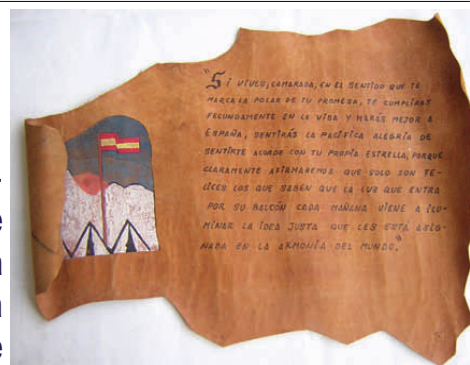 "Si vives, camarada, en el sentido que te
marca la polar de tu promesa, te cumpliras
fecundamente en la vida y harás mejor a
España, sentirás la pacífica alegría de
sentirte acorde con tu propia estrella, porque
claramente afirmaremos que solo son fe-
lices los que saben que la luz que entra
por su balcón cada mañana viene a ilu-
minar la idea justa que les está asig-
nada en la armonía del mundo."